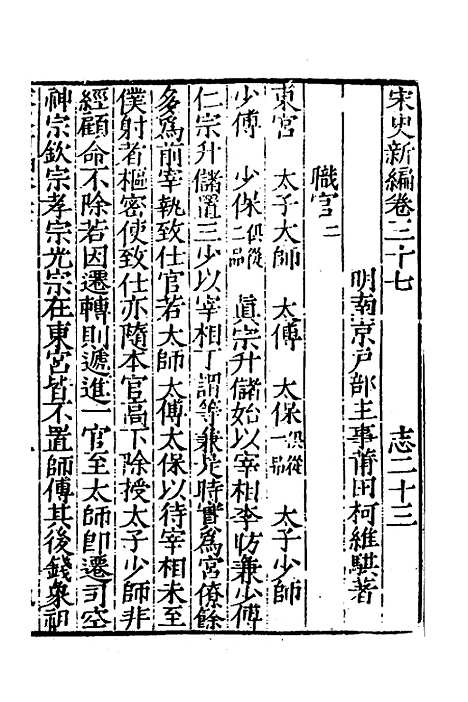 宋史新編卷三十七 志二十三
明南京戶部主事莆田柯維騏著
職官二
東宮 太子太師 太傅 太保俱從一品 太子少師
少傅 少保俱從二品 眞宗升儲始以宰相李昉兼少傅
仁宗升儲置三少以宰相丁謂等兼是時實爲宮僚餘
多爲前宰執致仕官若太師太傅太保以待宰相未至
僕射者樞密使致仕亦隨本官高下除授太子少師非
經顧命不除若因遷轉則遞進一官至太師卽遷司空
神宗欽宗孝宗光宗在東宮皆不置師傅其後錢象祖